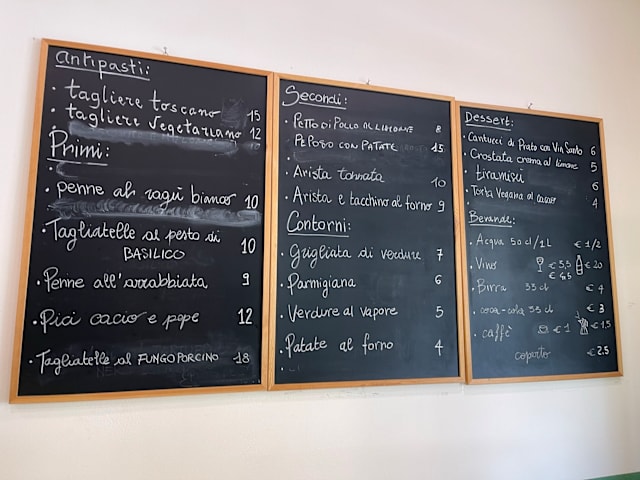 Antipasti:
• tagliere toscano 15
• tagliere vegetariano 12
Primi:
• penne al ragù bianco 10
• Tagliatelle al pesto di BASILICO 10
• Penne all'arrabbiata 9
• Pici cacio e pepe 12
• Tagliatelle al FUNGO PORCINO 18
Secondi:
• PETTO DI POLLO AL LIMONE 8
PEPOSO CON PATATE 15
• Arista tonnata 10
• Arista e tacchino al forno 9
Contorni:
• Grigliata di verdure 7
• Parmigiana 6
• Verdure al vapore 5
• Patate al forno 4
Dessert:
• Cantucci di Prato con Vin Santo 6
• Crostata crema al limone 5
• tiramisù 6
• Torta Vegana al cacao 4
Bevande:
• Acqua 50 cl/1L € 1/2
• Vino € 5,5 € 20
€ 6,5
• Birra 33 cl € 4
• coca-cola 33 cl € 3
• caffè € 1 € 1,5
coperto € 2.5